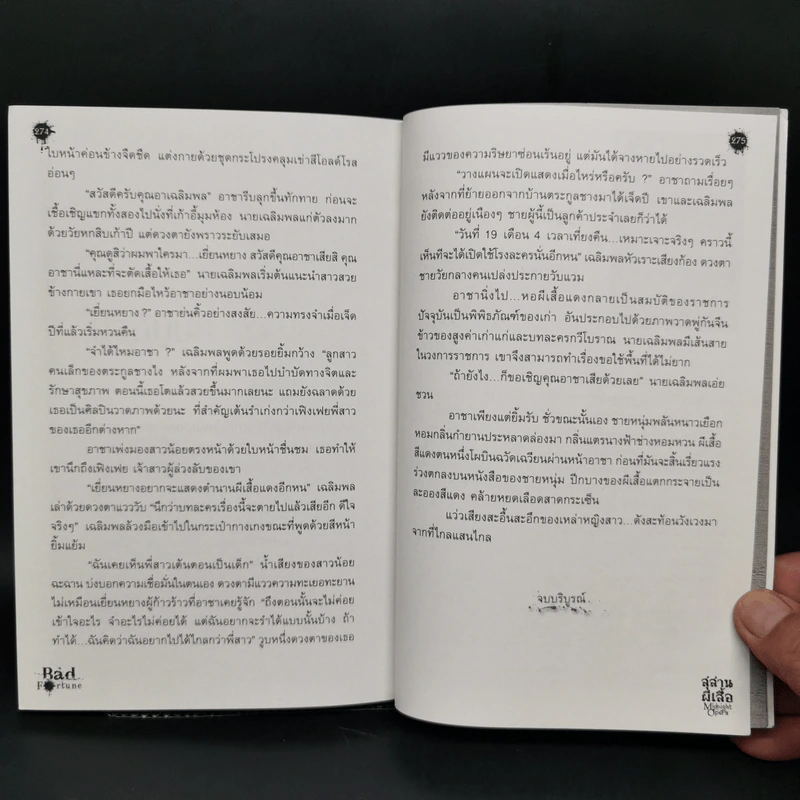 274
ใบหน้าค่อนข้างจืดชืด แต่งกายด้วยชุดกระโปรงคลุมเข่าสีโอลด์โรส
อ่อนๆ
“สวัสดีครับคุณอาเฉลิมพล” อาชารีบลุกขึ้นทักทาย ก่อนจะ
เชื้อเชิญแขกทั้งสองไปนั่งที่เก้าอี้มุมห้อง นายเฉลิมพลแก่ตัวลงมาก
ด้วยวัยหกสิบเก้าปี แต่ดวงตายังพราวระยับเสมอ
“คุณดูสิว่าผมพาใครมา...เยี่ยนหยาง สวัสดีคุณอาชาเสียสิ คุณ
อาชานี่แหละที่จะตัดเสื้อให้เธอ” นายเฉลิมพลเริ่มต้นแนะนำสาวสวย
ข้างกายเขา เธอยกมือไหว้อาชาอย่างนอบน้อม
“เยี่ยนหยาง ?” อาชาย่นคิ้วอย่างสงสัย...ความทรงจำเมื่อเจ็ด
ปีที่แล้วเริ่มหวนคืน
“จำได้ไหมอาชา ?” เฉลิมพลพูดด้วยรอยยิ้มกว้าง “ลูกสาว
คนเล็กของตระกูลชางไง หลังจากที่ผมพาเธอไปบำบัดทางจิตและ
รักษาสุขภาพ ตอนนี้เธอโตแล้วสวยขึ้นมากเลยนะ แถมยังฉลาดด้วย
เธอเป็นศิลปินวาดภาพด้วยนะ ที่สำคัญเต้นรำเก่งกว่าเฟิงเฟยพี่สาว
ของเธออีกต่างหาก”
อาชาเพ่งมองสาวน้อยตรงหน้าด้วยใบหน้าชื่นชม เธอทำให้
เขานึกถึงเฟิงเฟย เจ้าสาวผู้ล่วงลับของเขา
“เยี่ยนหยางอยากจะแสดงตำนานผีเสื้อแดงอีกหน” เฉลิมพล
เล่าด้วยดวงตาแวววับ “นึกว่าบทละครเรื่องนี้จะตายไปแล้วเสียอีก ดีใจ
จริงๆ” เฉลิมพลล้วงมือเข้าไปในกระเป๋ากางเกงขณะที่พูดด้วยสีหน้า
ยิ้มแย้ม
“ฉันเคยเห็นพี่สาวเต้นตอนเป็นเด็ก” น้ำเสียงของสาวน้อย
ฉะฉาน บ่งบอกความเชื่อมั่นในตนเอง ดวงตามีแววความทะเยอทะยาน
ไม่เหมือนเยี่ยนหยางผู้ก้าวร้าวที่อาชาเคยรู้จัก “ถึงตอนนั้นจะไม่ค่อย
เข้าใจอะไร จำอะไรไม่ค่อยได้ แต่ฉันอยากจะรำได้แบบนั้นบ้าง ถ้า
ทำได้...ฉันคิดว่าฉันอยากไปได้ไกลกว่าพี่สาว” วูบหนึ่งดวงตาของเธอ
Bad
Fortune
275
มีแววของความริษยาซ่อนเร้นอยู่ แต่มันได้จางหายไปอย่างรวดเร็ว
“วางแผนจะเปิดแสดงเมื่อไหร่หรือครับ ?” อาชาถามเรื่อยๆ
หลังจากที่ย้ายออกจากบ้านตระกูลชางมาได้เจ็ดปี เขาและเฉลิมพล
ยังติดต่ออยู่เนืองๆ ชายผู้นี้เป็นลูกค้าประจำเลยก็ว่าได้
“วันที่ 19 เดือน 4 เวลาเที่ยงคืน...เหมาะเจาะจริงๆ คราวนี้
เห็นทีจะได้เปิดใช้โรงละครนั่นอีกหน” เฉลิมพลหัวเราะเสียงก้อง ดวงตา
ชายวัยกลางคนเปล่งประกายวับแวม
อาชานิ่งไป...หอผีเสื้อแดงกลายเป็นสมบัติของราชการ
ปัจจุบันเป็นพิพิธภัณฑ์ของเก่า อันประกอบไปด้วยภาพวาดพู่กันจีน
ข้าวของสูงค่าเก่าแก่และบทละครกวีโบราณ นายเฉลิมพลมีเส้นสาย
ในวงการราชการ เขาจึงสามารถทำเรื่องขอใช้พื้นที่ได้ไม่ยาก
“ถ้ายังไง...ก็ขอเชิญคุณอาชาเสียด้วยเลย” นายเฉลิมพลเอ่ย
ชวน
อาชาเพียงแต่ยิ้มรับ ชั่วขณะนั้นเอง ชายหนุ่มพลันหนาวเยือก
หอมกลิ่นกำยานประหลาดล่องมา กลิ่นแตรนางฟ้าช่างหอมหวน ผีเสื้อ
สีแดงตนหนึ่งโผบินฉวัดเฉวียนผ่านหน้าอาชา ก่อนที่มันจะสิ้นเรี่ยวแรง
ร่วงตกลงบนหนังสือของชายหนุ่ม ปีกบางของผีเสื้อแตกกระจายเป็น
ละอองสีแดง คล้ายหยดเลือดสาดกระเซ็น
แว่วเสียงสะอื้นสะอึกของเหล่าหญิงสาว...ดังสะท้อนวังเวงมา
จากที่ไกลแสนไกล
จบบริบูรณ์
สุสาน
ผีเสื้อ
Midnight
Opera